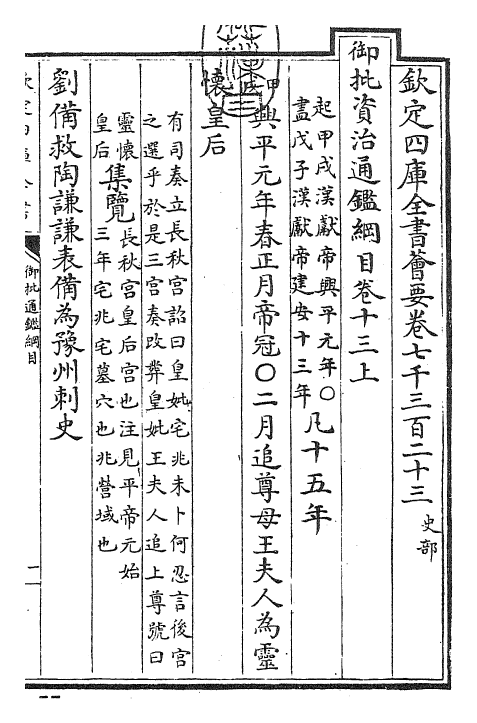 欽定四庫全書薈要卷七千三百二十三 史部
御批資治通鑑綱目卷十三上
起甲戌漢獻帝興平元年〇
盡戊子漢獻帝建安十三年 凡十五年
甲戌 興平元年春正月帝冠〇二月追尊母王夫人為靈
懷皇后
有司奏立長秋宮詔曰皇妣宅兆未卜何忍言後宮
之選乎於是三宮奏改葬皇妣王夫人追上尊號曰
靈懷
皇后 集覽 長秋宮皇后宮也注見平帝元始
三年宅兆宅墓穴也兆營域也
劉備救陶謙謙表備為豫州刺史
御批通鑑綱目